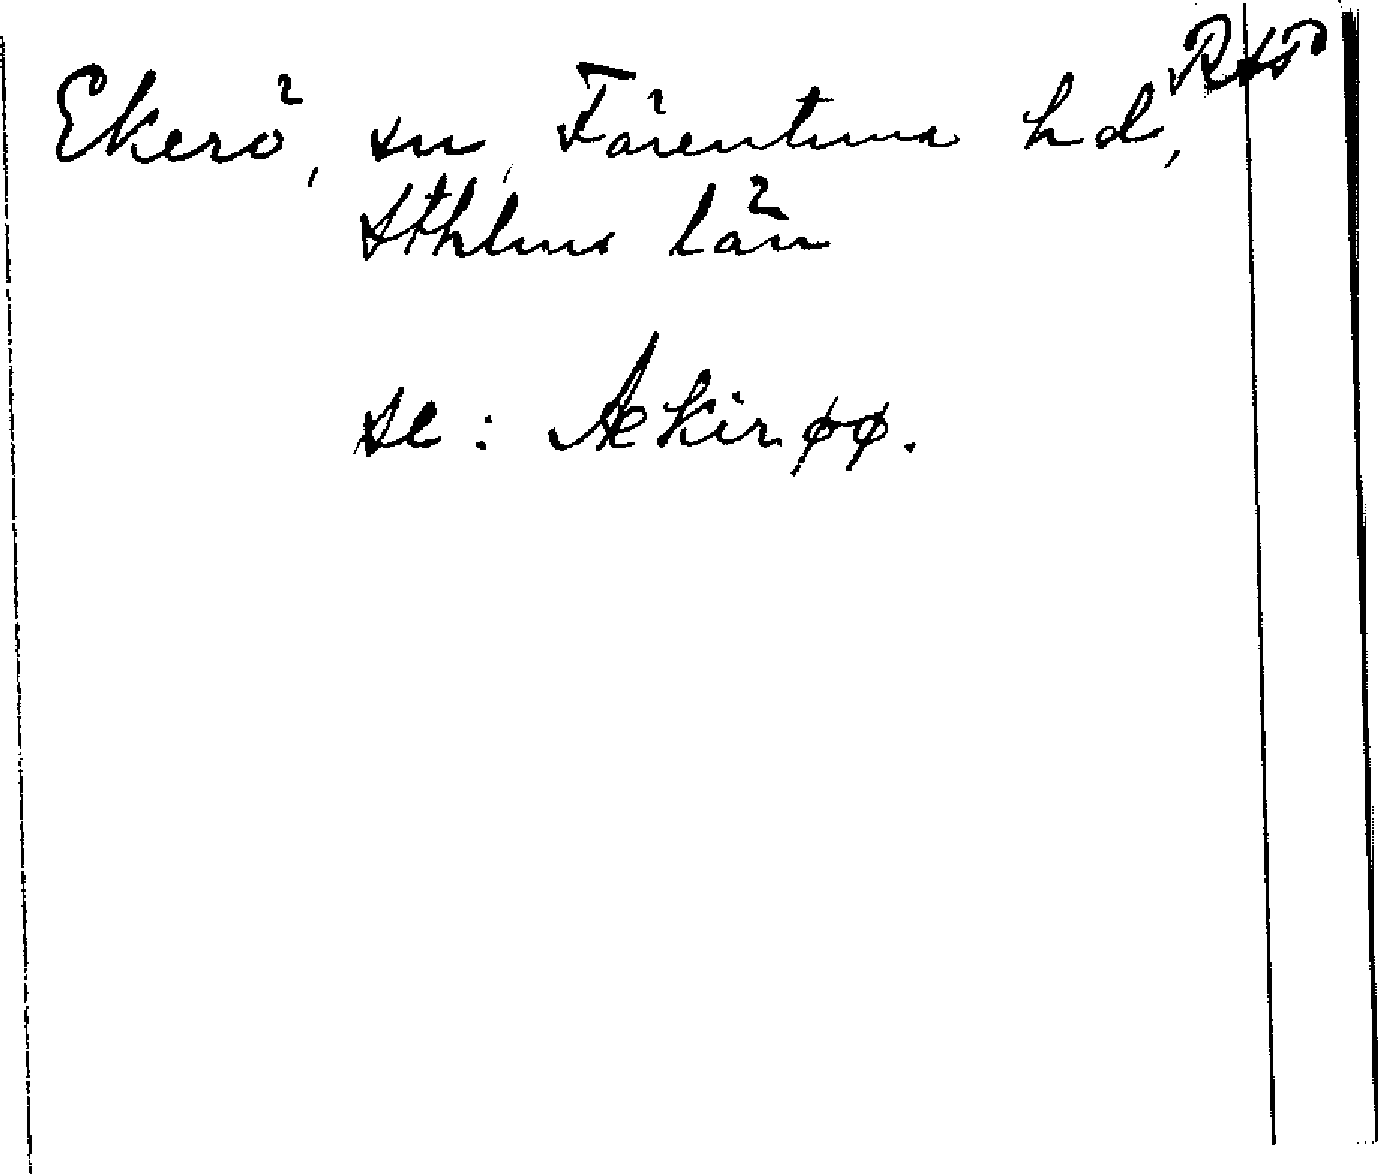 Ekerö, sn, Färentuna hd,
Sthlms län
se: Ækirøø.